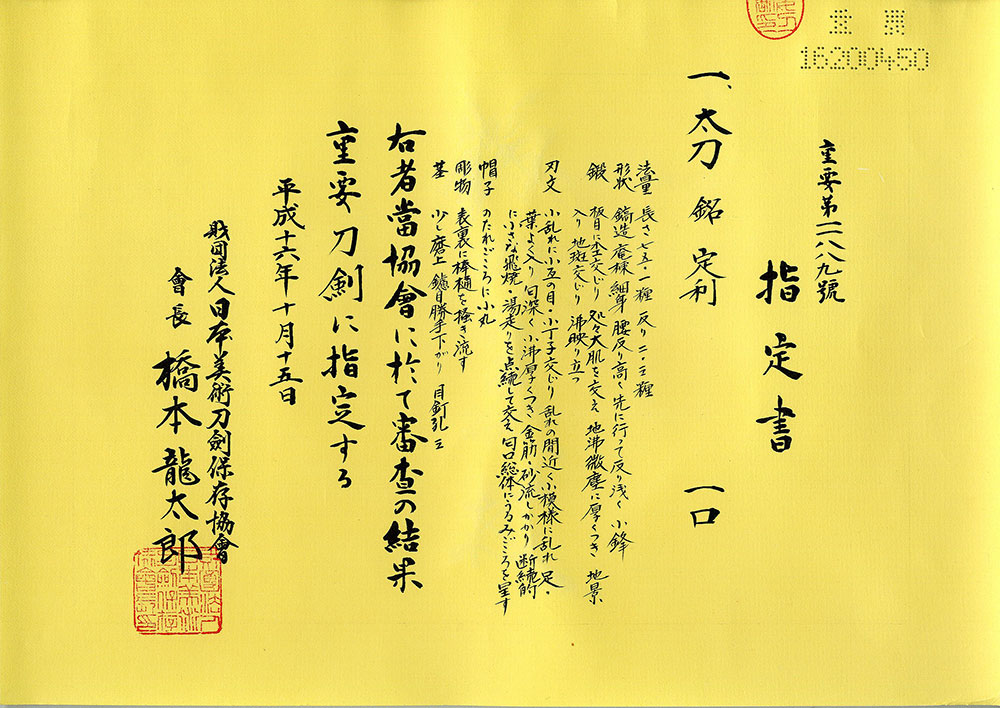 16200450
重要第一二八九號
指定書
一、太刀 銘 定利 一口
法量 長さ七五・一糎 反り二・三糎
形状 鎬造 庵棟 細身 腰反り高く 先に行って反り浅く 小鋒
鍛 板目に杢交じり 処々大肌を交え 地沸微塵に厚くつき 地景
入り 地斑交じり 沸映り立つ
刃文 小乱れに小互の目・小丁子交じり 乱れの間近く小模様に乱れ 足・
葉よく入り 匂深く 小沸厚くつき 金筋・砂流しかかり 断続的
に小さな飛焼・湯走りを点綴して交え 匂口総体にうるみごころを呈す
帽子 のたれごころに小丸
彫物 表裏に棒樋を掻き流す
茎 少し磨上 鑢目勝手下がり 目釘孔三
右者當協會に於て審査の結果
重要刀剣に指定する
平成十六年十月十五日
財団法人日本美術刀劍保存協會
會長 橋本龍太郎